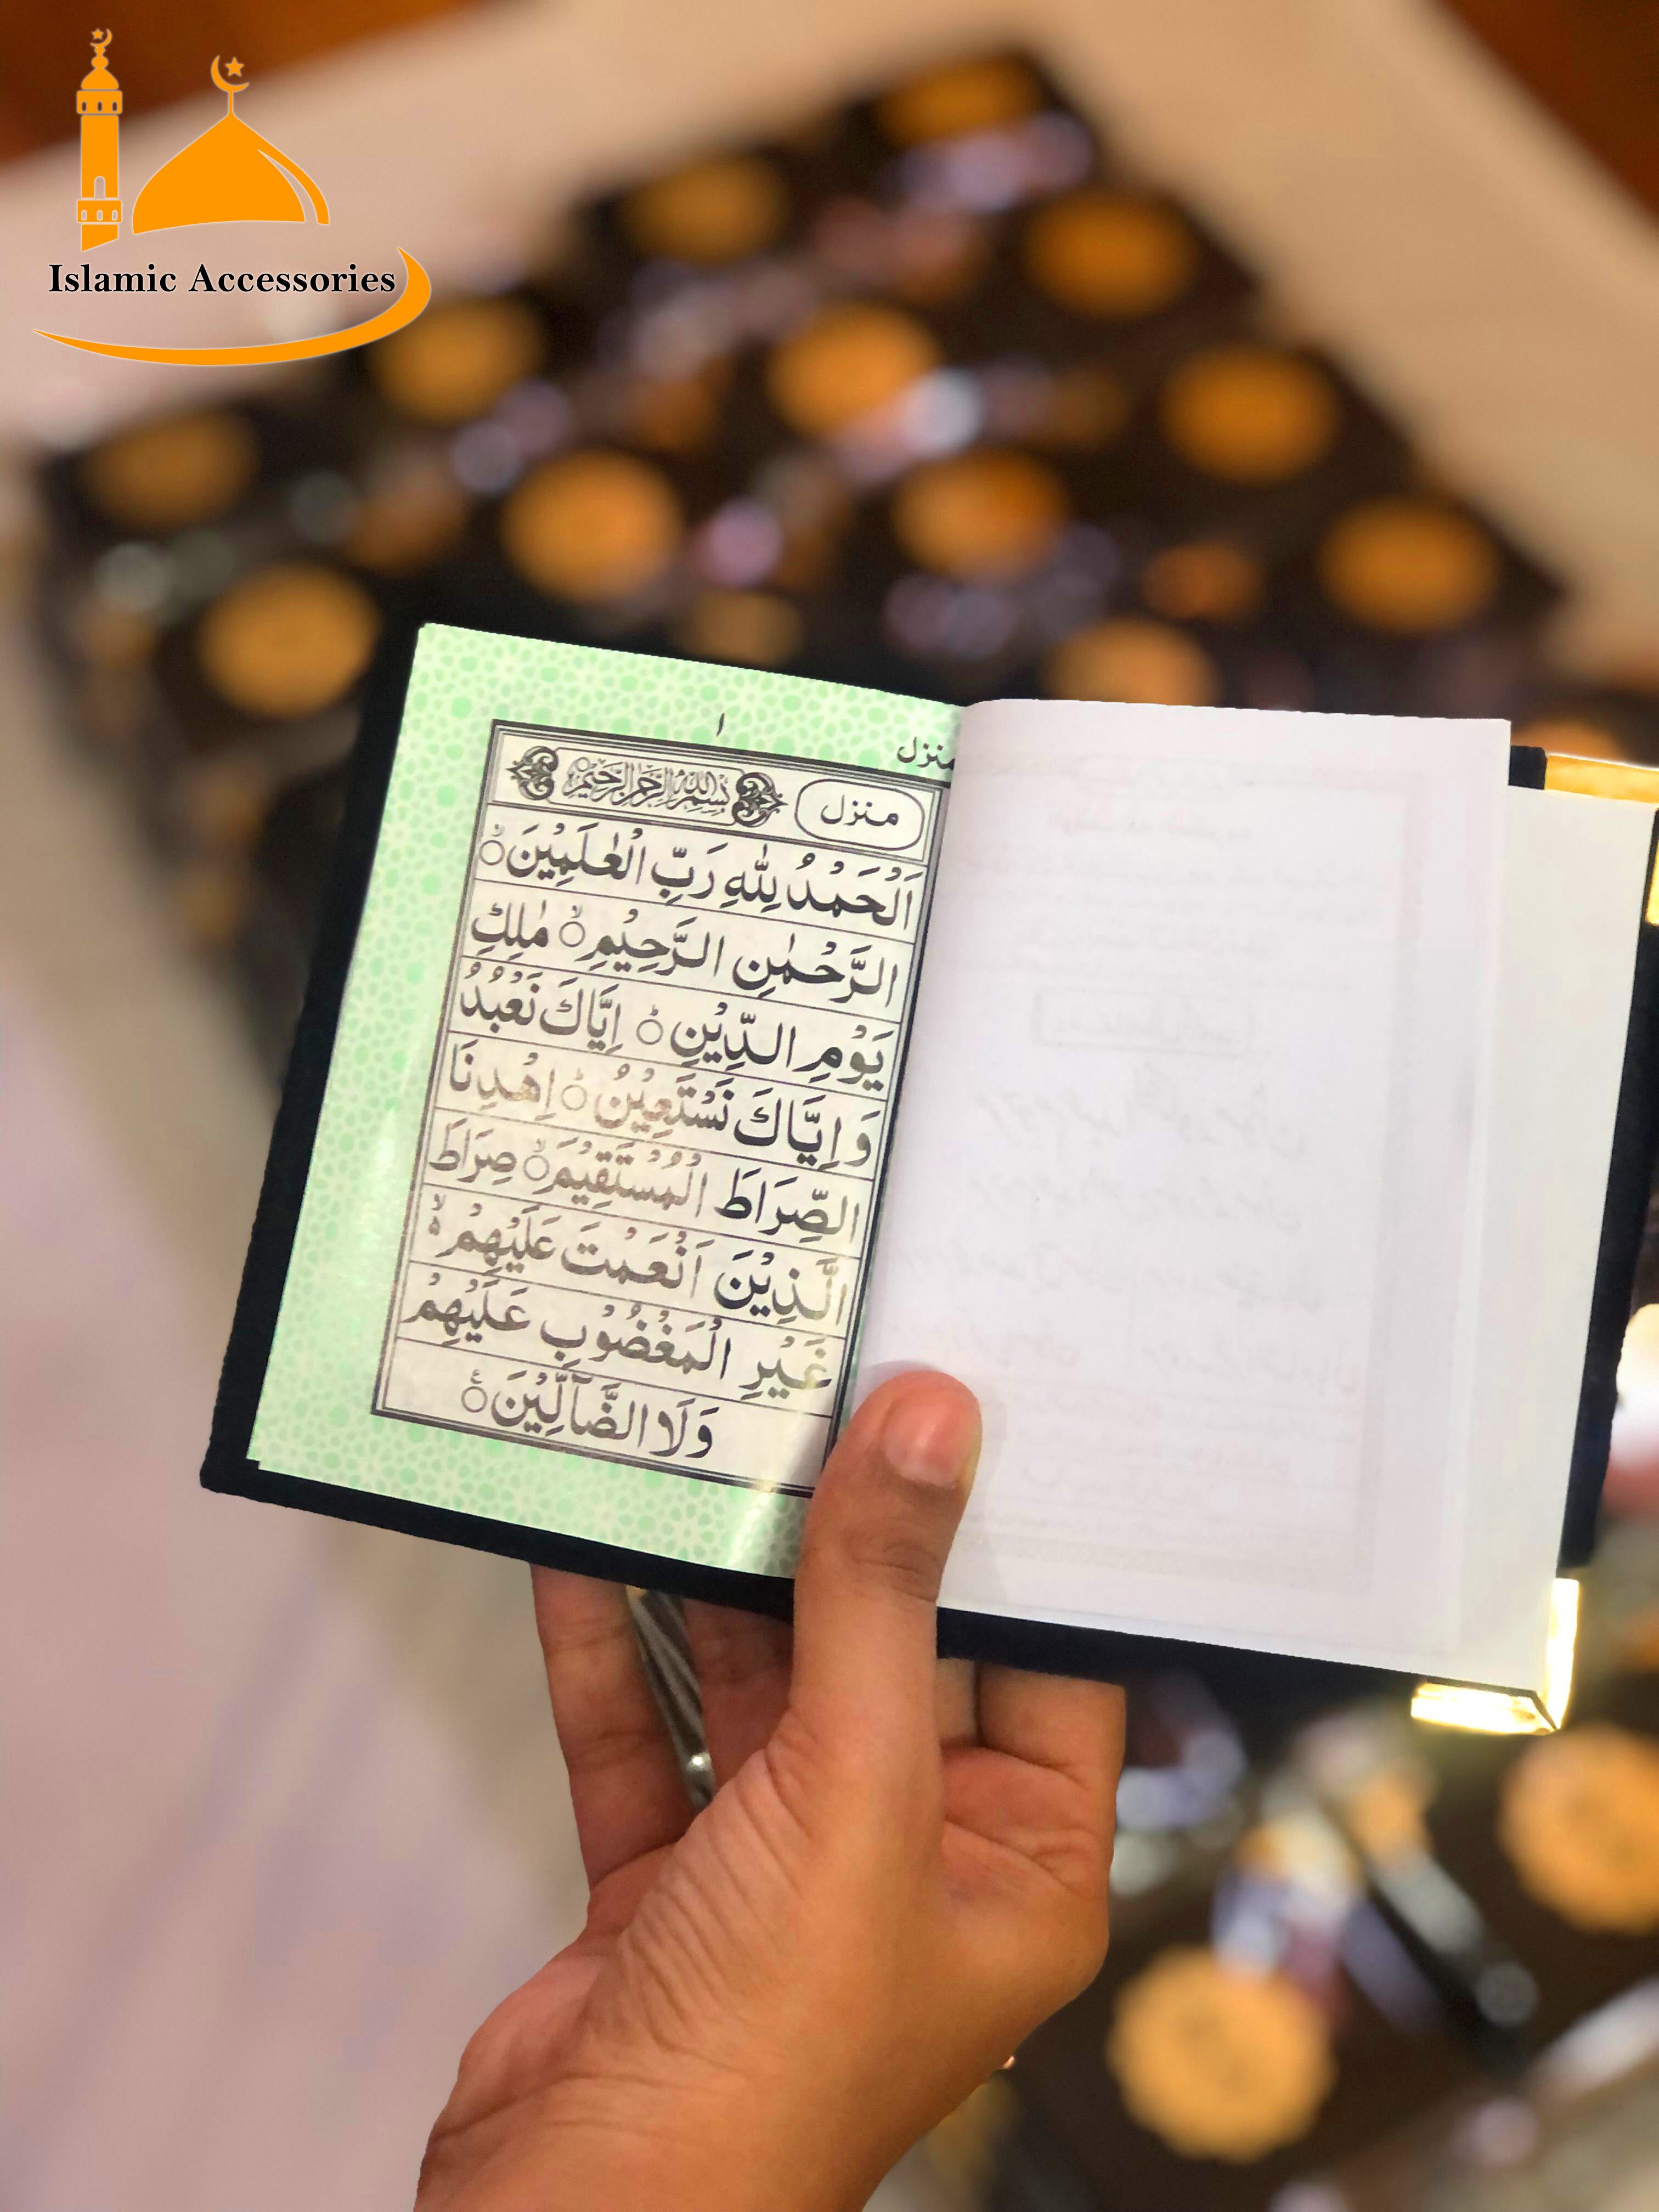 Islamic Accessories
١
منزل
منزل
بِسْمِ اللهِ الرَّحْمٰنِ الرَّحِيْمِ
اَلْحَمْدُ لِلّٰهِ رَبِّ الْعٰلَمِيْنَ ۙ
الرَّحْمٰنِ الرَّحِيْمِ ۙ مٰلِكِ
يَوْمِ الدِّيْنِ ؕ اِيَّاكَ نَعْبُدُ
وَاِيَّاكَ نَسْتَعِيْنُ ؕ اِهْدِنَا
الصِّرَاطَ الْمُسْتَقِيْمَ ۙ صِرَاطَ
الَّذِيْنَ اَنْعَمْتَ عَلَيْهِمْ ۙ۬
غَيْرِ الْمَغْضُوْبِ عَلَيْهِمْ
وَلَا الضَّآلِّيْنَ ۠